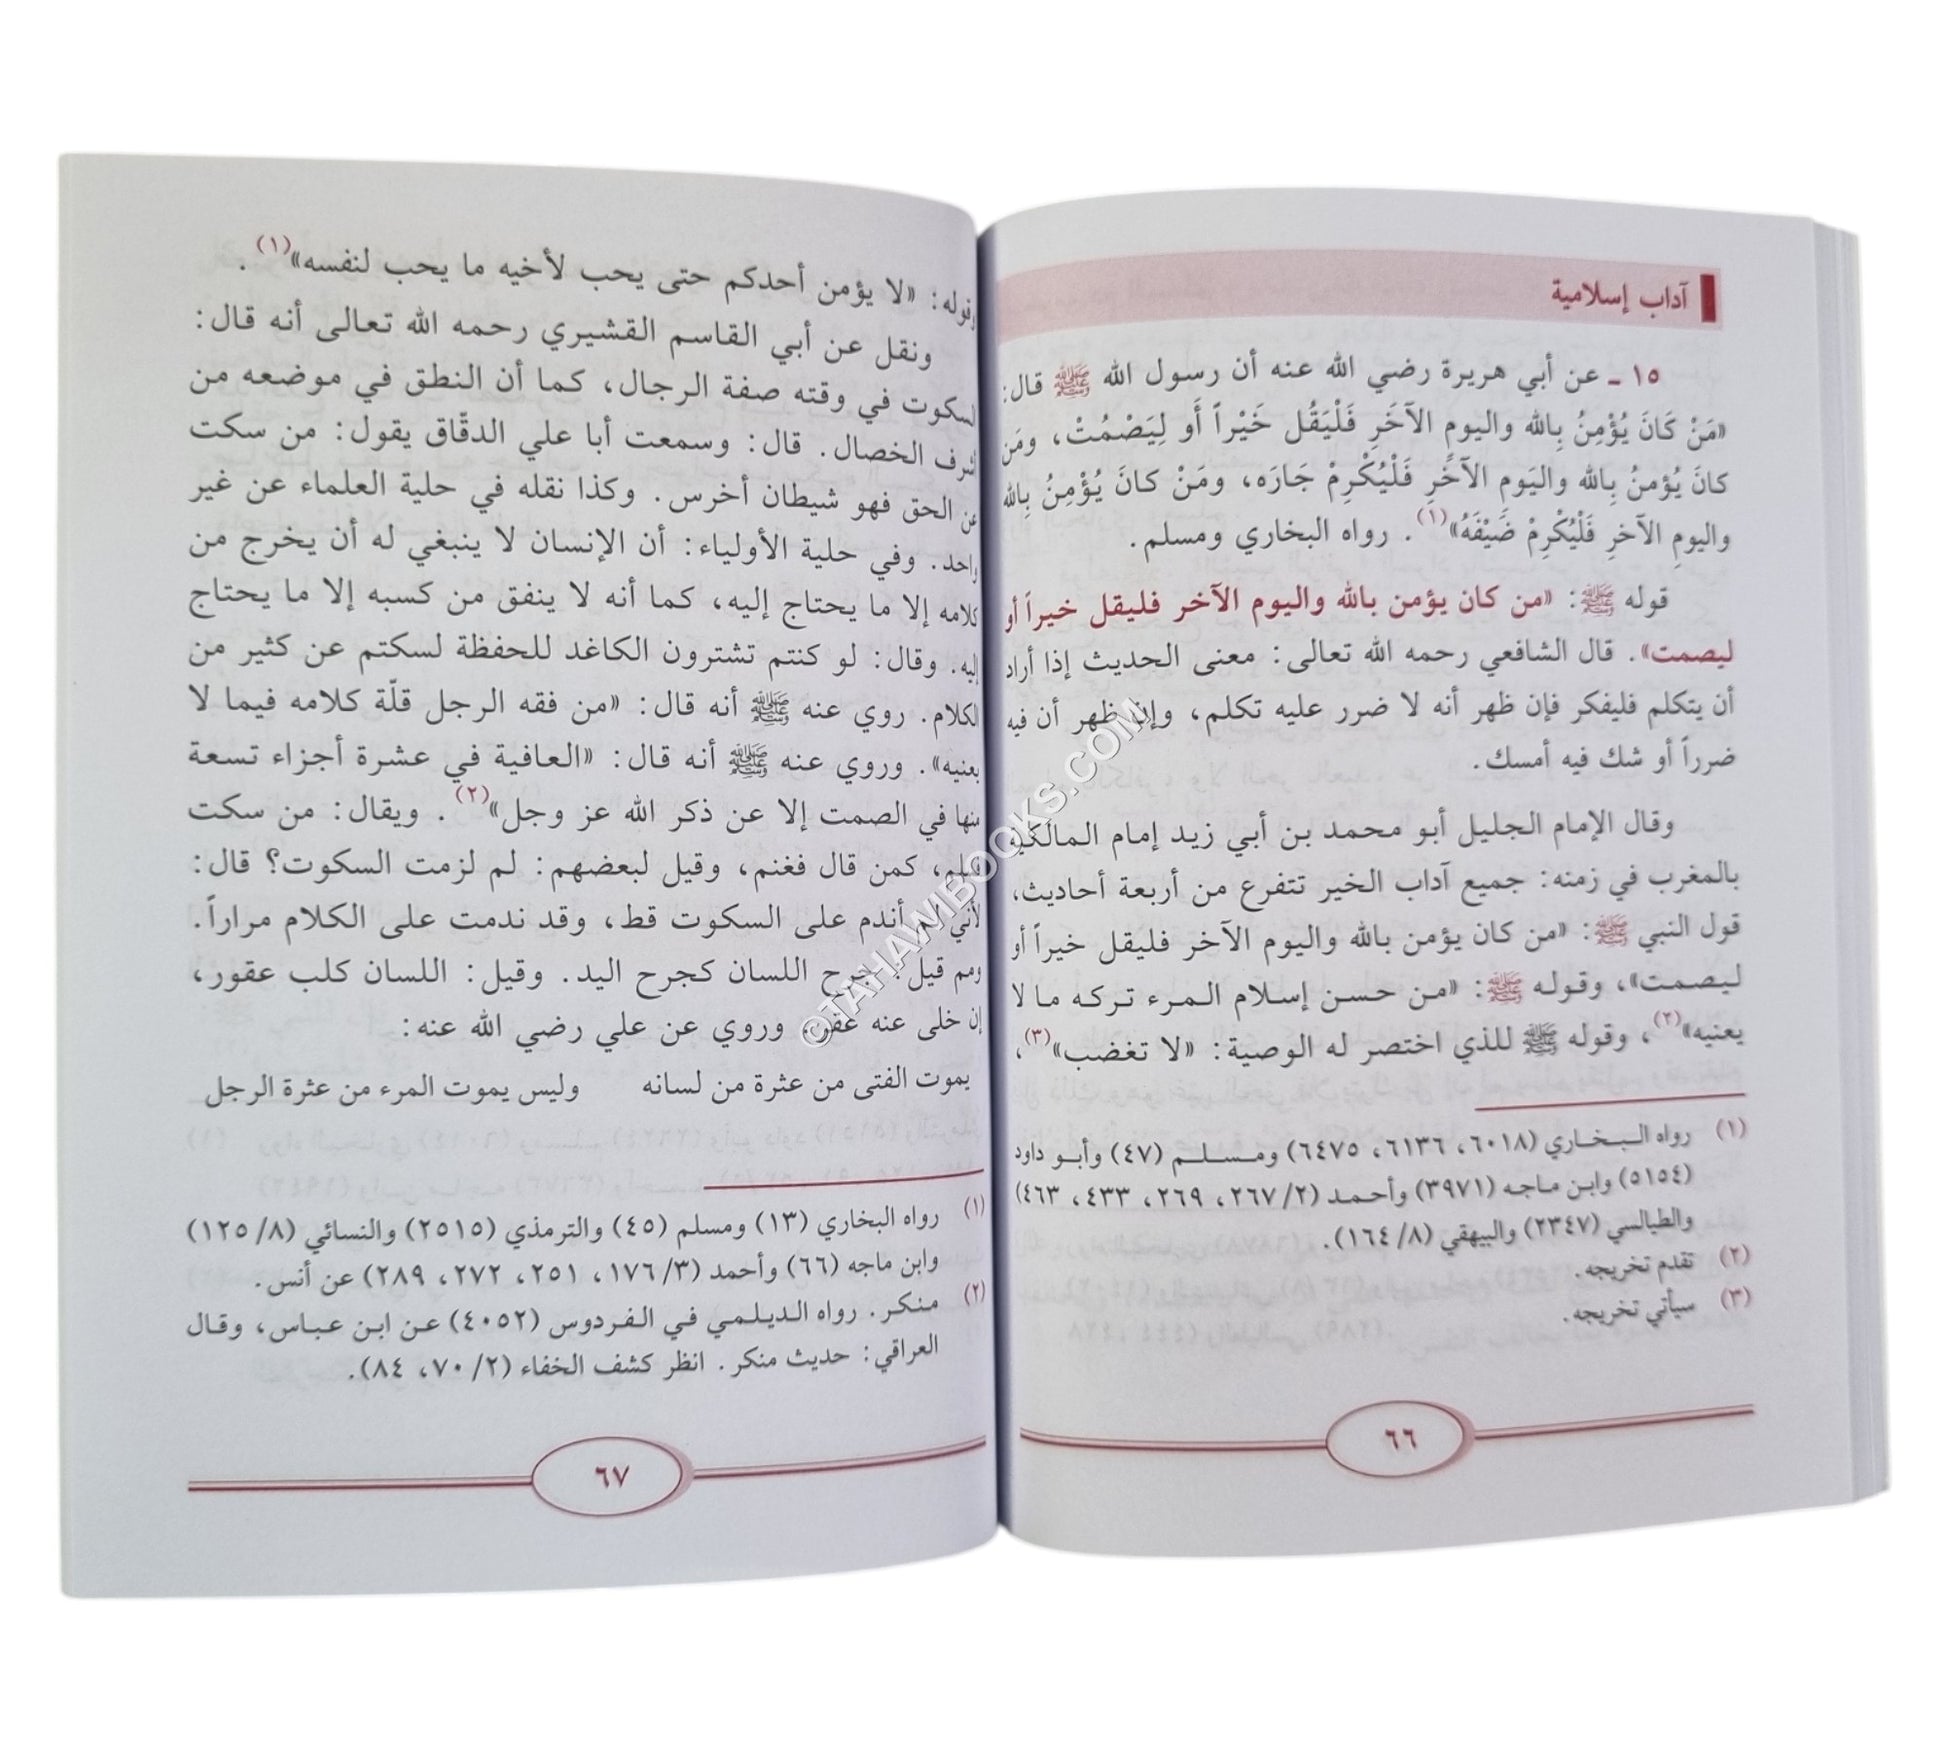 آداب إسلامية
١٥ ـ عن أبي هريرة رضي الله عنه أن رسول الله ﷺ قال:
«مَنْ كَانَ يُؤْمِنُ بِالله واليومِ الآخَرِ فَلْيَقُل خَيْراً أَو لِيَصْمُتْ، ومَن
كانَ يُؤمنُ بِالله واليَومِ الآخَرِ فَلْيُكْرِمْ جَارَه، ومَنْ كانَ يُؤْمِنُ بِالله
واليومِ الآخرِ فَلْيُكْرِمْ ضَيْفَهُ»(١). رواه البخاري ومسلم.
قوله ﷺ: «من كان يؤمن بالله واليوم الآخر فليقل خيراً أو
ليصمت». قال الشافعي رحمه الله تعالى: معنى الحديث إذا أراد
أن يتكلم فليفكر فإن ظهر أنه لا ضرر عليه تكلم، وإن ظهر أن فيه
ضرراً أو شك فيه أمسك.
وقال الإمام الجليل أبو محمد بن أبي زيد إمام المالكية
بالمغرب في زمنه: جميع آداب الخير تتفرع من أربعة أحاديث،
قول النبي ﷺ: «من كان يؤمن بالله واليوم الآخر فليقل خيراً أو
ليصمت»، وقوله ﷺ: «من حسن إسلام المرء تركه ما لا
يعنيه»(٢)، وقوله ﷺ للذي اختصر له الوصية: «لا تغضب»(٣)،
(١) رواه البخاري (٦٠١٨، ٦١٣٦، ٦٤٧٥) ومسلم (٤٧) وأبو داود
(٥١٥٤) وابن ماجه (٣٩٧١) وأحمد (٢/ ٢٦٧، ٢٦٩، ٤٣٣، ٤٦٣)
والطيالسي (٢٣٤٧) والبيهقي (٨/ ١٦٤).
(٢) تقدم تخريجه.
(٣) سيأتي تخريجه.
٦٦
وقوله: «لا يؤمن أحدكم حتى يحب لأخيه ما يحب لنفسه»(١).
ونقل عن أبي القاسم القشيري رحمه الله تعالى أنه قال:
السكوت في وقته صفة الرجال، كما أن النطق في موضعه من
أشرف الخصال. قال: وسمعت أبا علي الدقّاق يقول: من سكت
عن الحق فهو شيطان أخرس. وكذا نقله في حلية العلماء عن غير
واحد. وفي حلية الأولياء: أن الإنسان لا ينبغي له أن يخرج من
كلامه إلا ما يحتاج إليه، كما أنه لا ينفق من كسبه إلا ما يحتاج
إليه. وقال: لو كنتم تشترون الكاغد للحفظة لسكتم عن كثير من
الكلام. روي عنه ﷺ أنه قال: «من فقه الرجل قلّة كلامه فيما لا
يعنيه». وروي عنه ﷺ أنه قال: «العافية في عشرة أجزاء تسعة
منها في الصمت إلا عن ذكر الله عز وجل»(٢). ويقال: من سكت
فسلم، كمن قال فغنم، وقيل لبعضهم: لم لزمت السكوت؟ قال:
لأني لم أندم على السكوت قط، وقد ندمت على الكلام مراراً.
ومم قيل: جرح اللسان كجرح اليد. وقيل: اللسان كلب عقور،
إن خلى عنه عقر. وروي عن علي رضي الله عنه:
يموت الفتى من عثرة من لسانه وليس يموت المرء من عثرة الرجل
(١) رواه البخاري (١٣) ومسلم (٤٥) والترمذي (٢٥١٥) والنسائي (٨/ ١٢٥)
وابن ماجه (٦٦) وأحمد (٣/ ١٧٦، ٢٥١، ٢٧٢، ٢٨٩) عن أنس.
(٢) منكر. رواه الديلمي في الفردوس (٤٠٥٢) عن ابن عباس، وقال
العراقي: حديث منكر. انظر كشف الخفاء (٢/ ٧٠، ٨٤).
٦٧
©TAHAWIBOOKS.COM